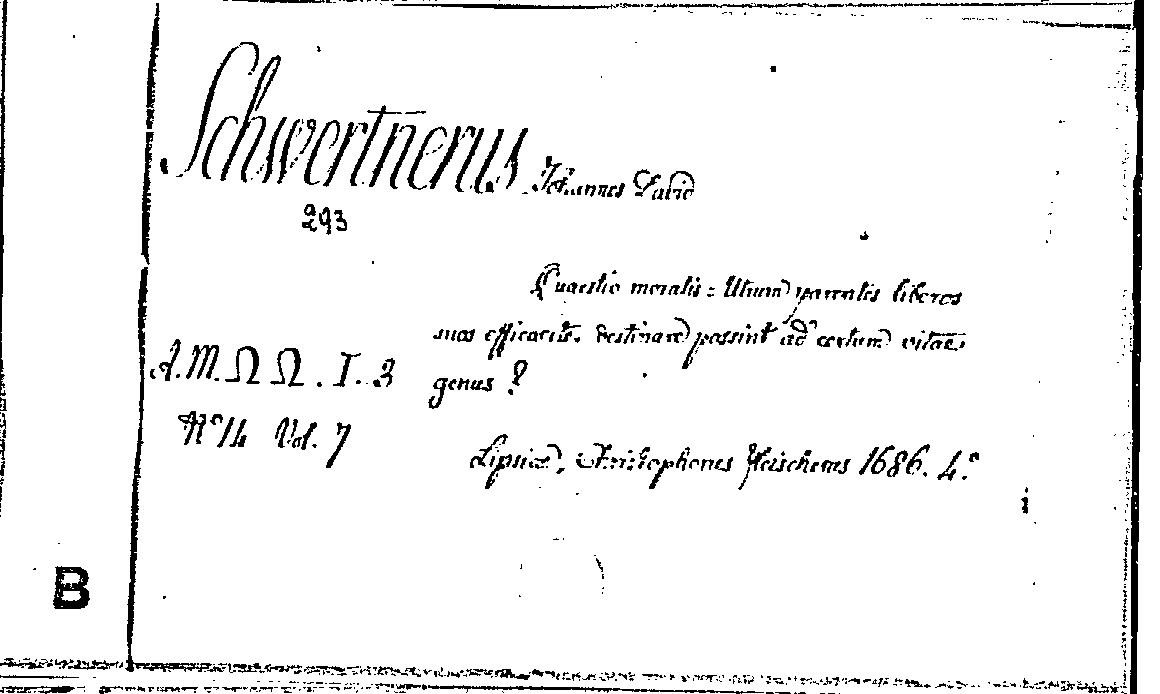 Schwertnerus Johannes David
293
Quaestio moralis: Utrum parentes liberos
suos efficacit. destinare possint ad certum vitae
genus?
A.M. Ω Ω. I. 3
N° 14 Vol. 7
Lipsiae, Christophorus Fleischerus 1686. 4.°
B